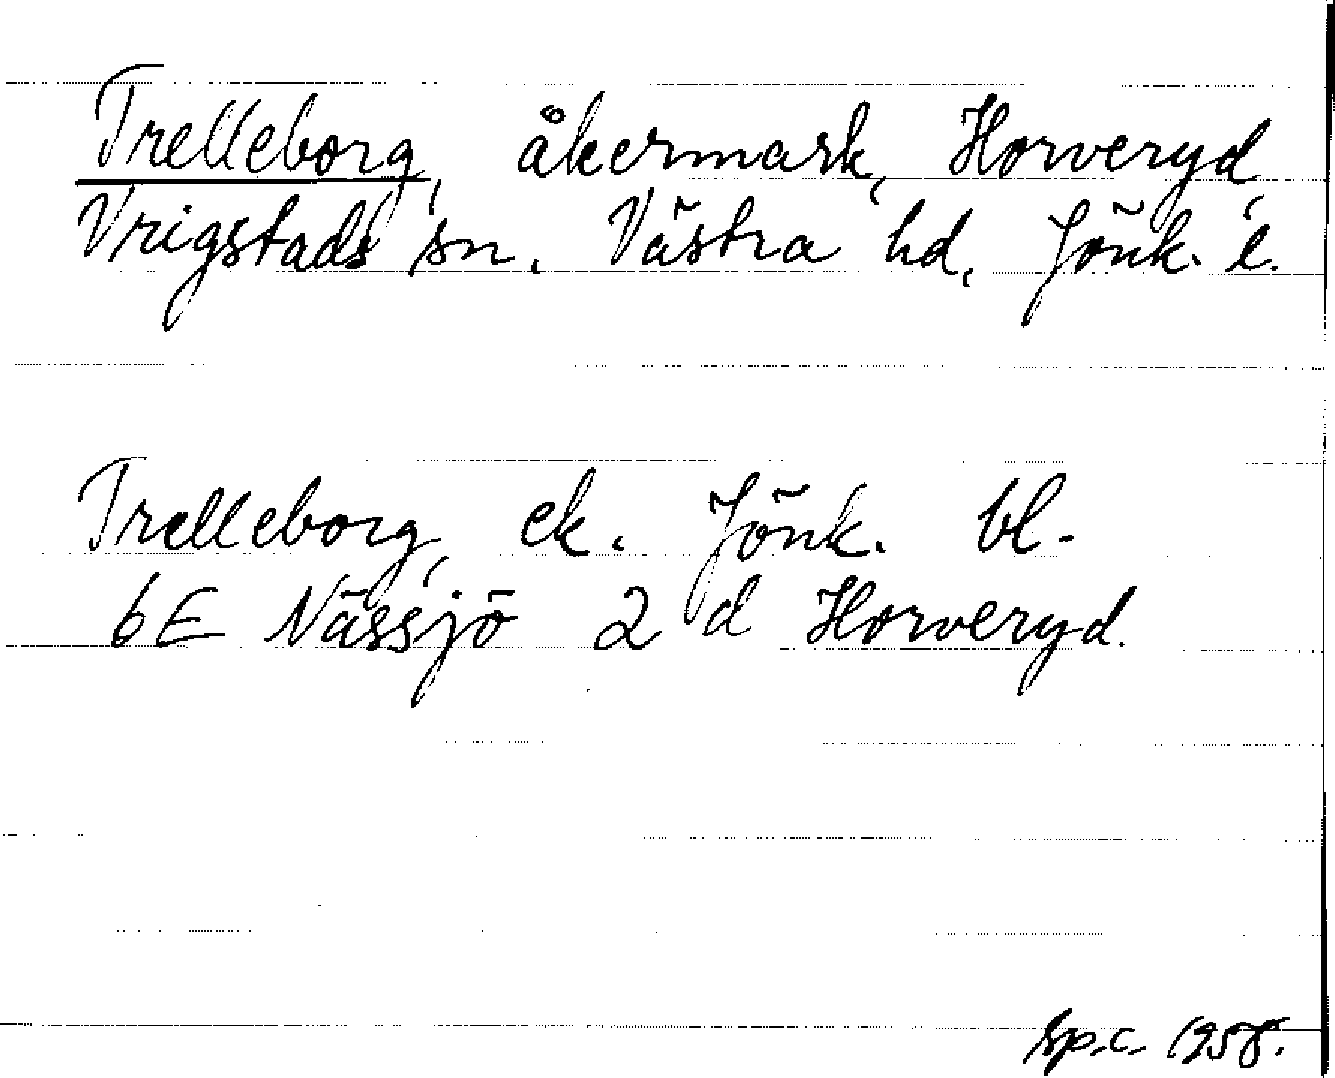 Trelleborg, åkermark, Horveryd,
Vrigstads sn. Västra hd, Jönk. l.
Trelleborg, ek. Jönk. bl.
6E Nässjö 2 d Horveryd.
sp.c. 1958.